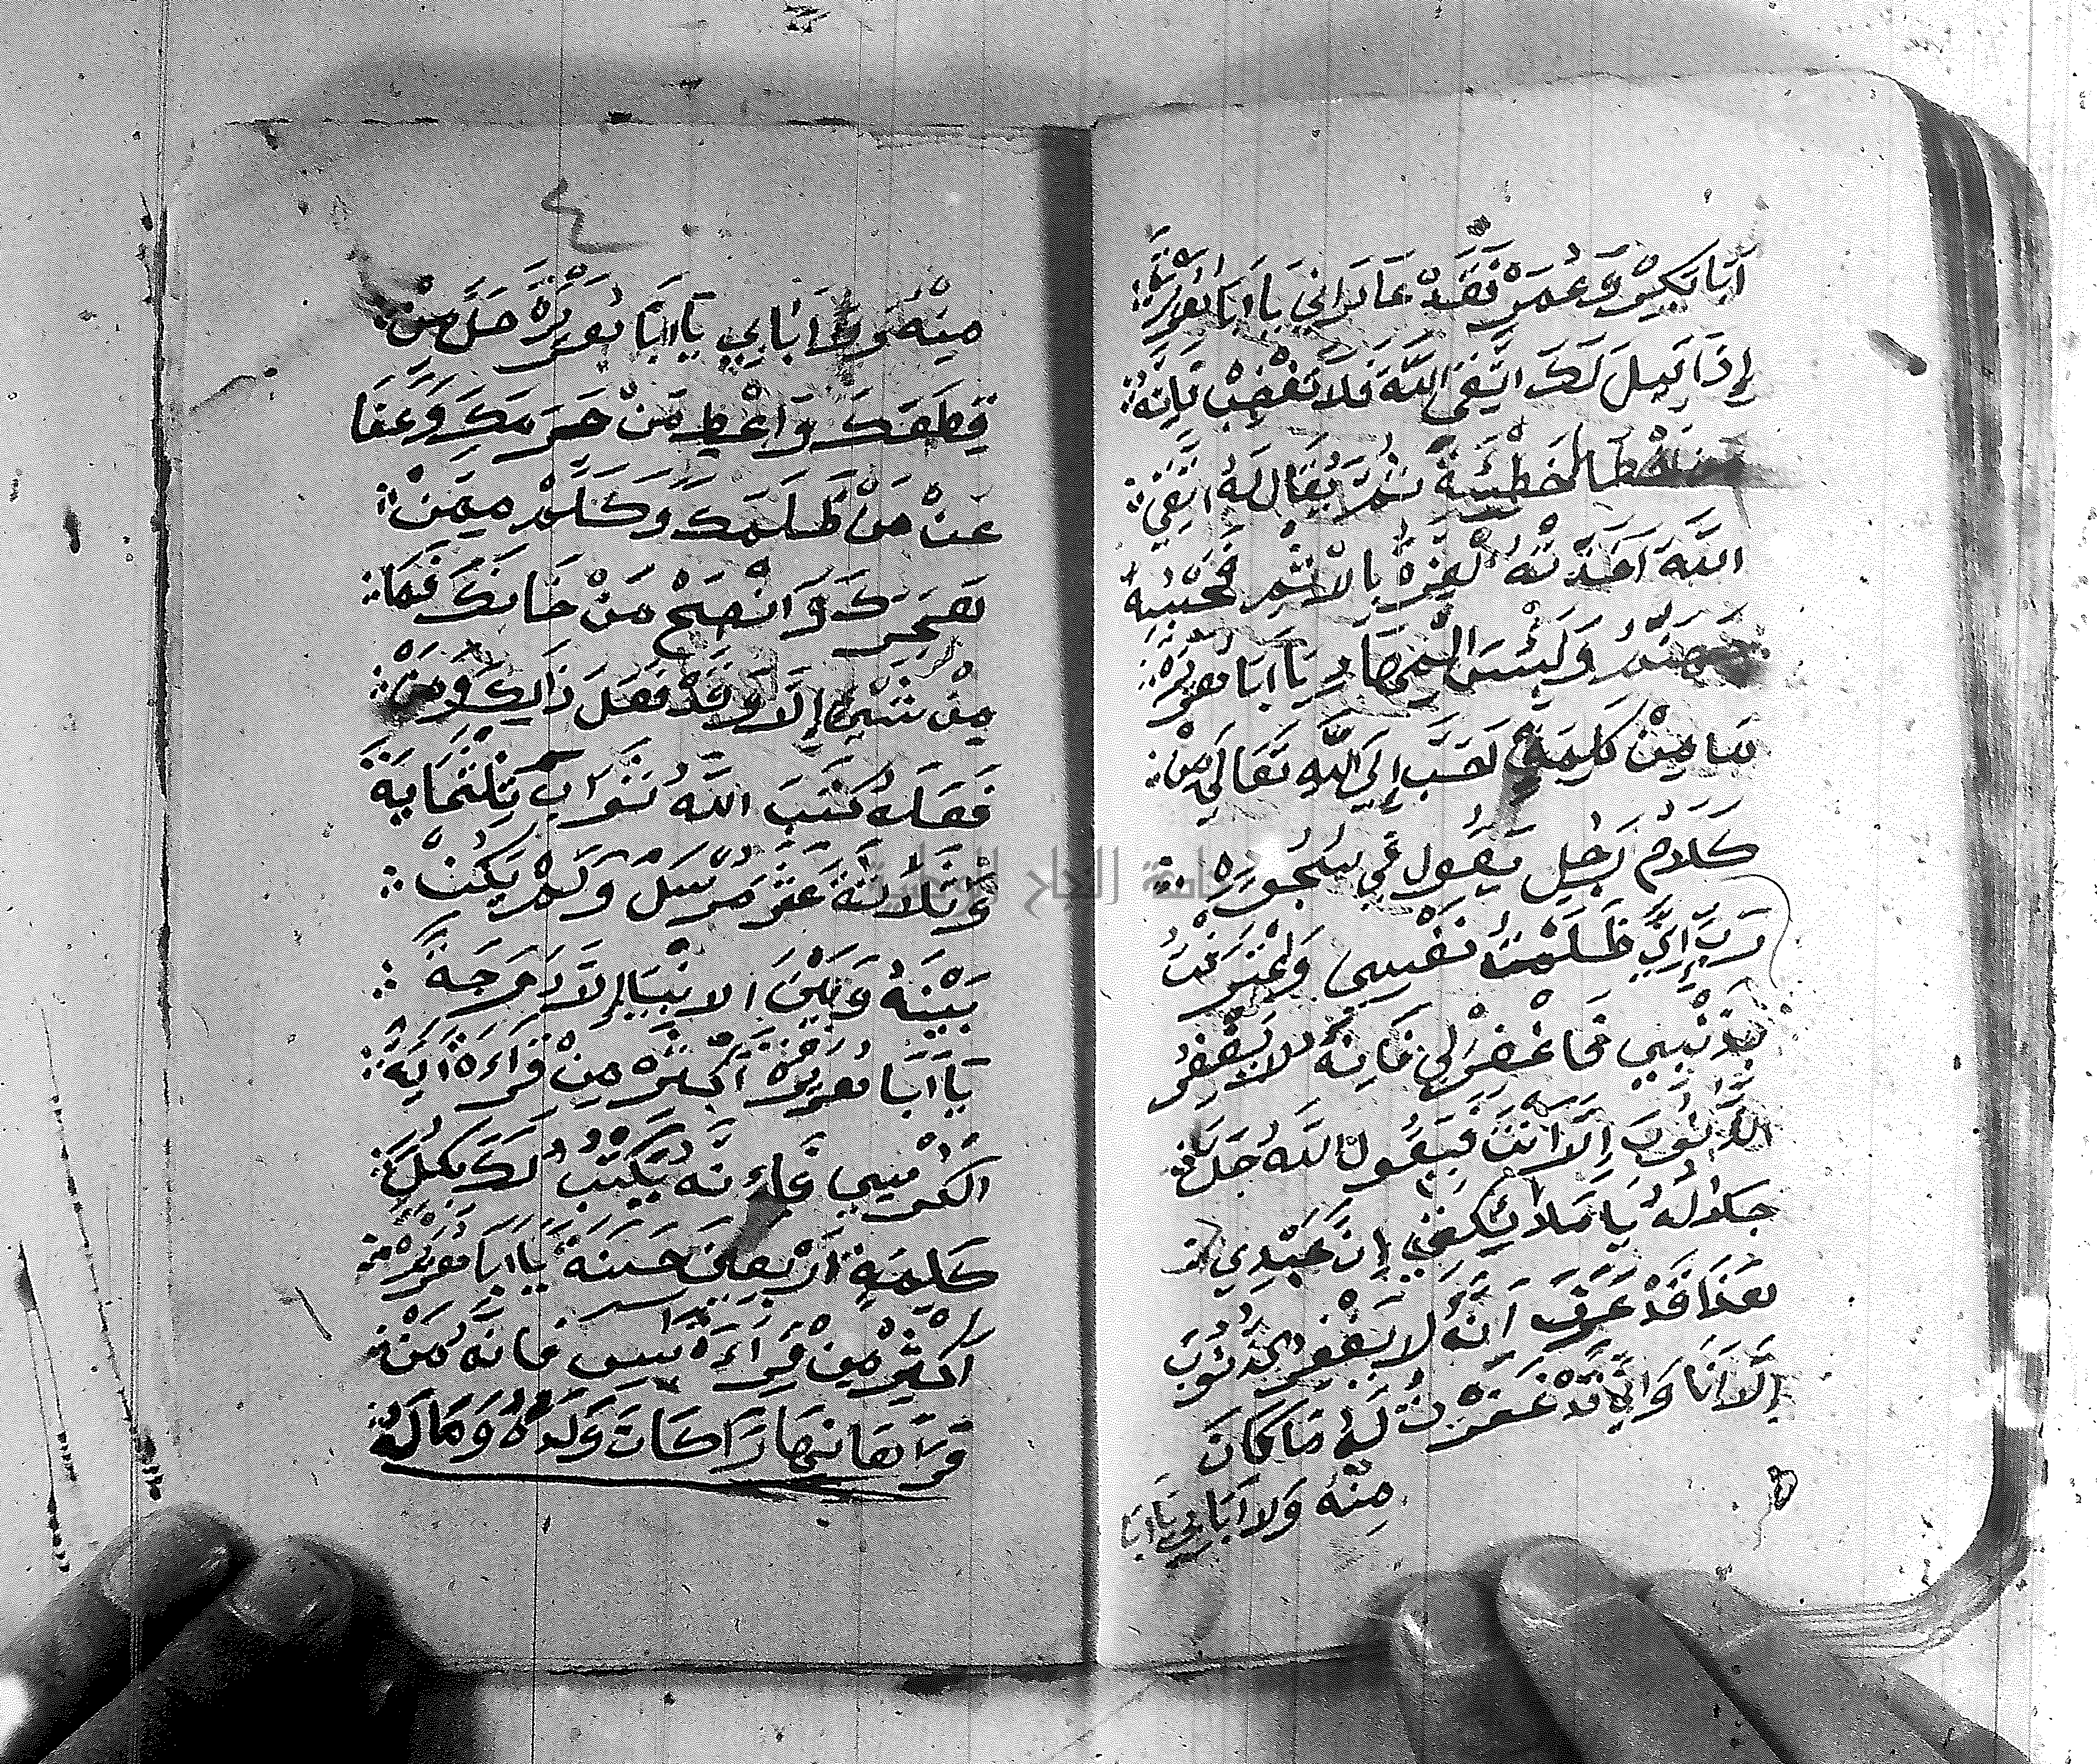 أَبَا بَكِرْ وَعُمَرْ فَقَدْ عَادَانِي يَا أَبَا هُرَيْرَةَ
إِذَا قِيلَ لَكَ اتَّقِي اللَّهَ فَلَا تَغْضِبْ فَإِنَّهُ
الْخَطِيئَةَ ثُمَّ يُقَالَ لَهُ اتَّقِي
اللَّهَ أَخَذَتْهُ الْعِزَّةُ بِالْإِثْمِ فَحَسْبُهُ
جَهَنَّمُ وَلَبِئْسَ الْمِهَادِ يَا أَبَا هُرَيْرَةَ
مَا مِنْ كَلِمَةٍ أَحَبَّ إِلَى اللَّهِ تَعَالَى مِنْ
كَلَامُ رَجُلٍ يَقُولُ فِي سُجُودِهِ
رَبِّ إِنِّي ظَلَمْتُ نَفْسِي وَاعْتَرَفْتُ
بِذَنْبِي فَاغْفِرْ لِي فَإِنَّهُ لَا يَغْفِرُ
الذُّنُوبَ إِلَّا أَنْتَ فَيَقُولُ اللَّهُ جَلَّ
جَلَالُهُ يَا مَلَائِكَتِي إِنَّ عَبْدِي
هَذَا قَدْ عَرَفَ أَنَّهُ لَا يَغْفِرُ الذُّنُوبَ
إِلَّا أَنَا وَإِنِّي قَدْ غَفَرْتُ لَهُ مَا كَانَ
مِنْهُ وَلَا أُبَالِي يَا أَبَا
٤
مِنْهُ وَلَا أُبَالِي يَا أَبَا هُرَيْرَةَ صَلِّ مَنْ
قَطَعَكَ وَاعْطِ مَنْ حَرَمَكَ وَعْفَا
عَنْ مَنْ ظَلَمَكَ وَكَلِّمْ مِمَنْ
هَجَرَكَ وَانْصَحْ مَنْ خَانَكَ فَمَا
مِنْ شَيْءٍ إِلَّا وَقَدْ فَعَلَ ذَالِكَ وَمَنْ
فَعَلَهُ كَتَبَ اللَّهُ ثَوَابَ ثَلْثُمَايَةَ
وَثَلَاثَةَ عَشَرَ مُرْسَلَ وَلَمْ يَكُنْ
بَيْنَهُ وَبَيْنَ الانْبِيَاءِ إِلَّا دَرَجَةً
يَا أَبَا هُرَيْرَةَ أَكْثِرْهْ مِنْ قَرَاءَةْ ايَةُ
الكُرْسِيِ فَاءِنَّهُ يُكْتَبُ لَكَ بِكُلِّ
كَلِمَةٍ أَرْبَعِينَ حَسَنَةً يَا أَبَا هُرَيْرَةْ
أَكْثِرْ مِنْ قِرَاءَةْ يَس فَانَّهُ مَنْ
قَرَاهَا نِهَارًا كَانَ وَلَدُهُ وَمَالَهُ